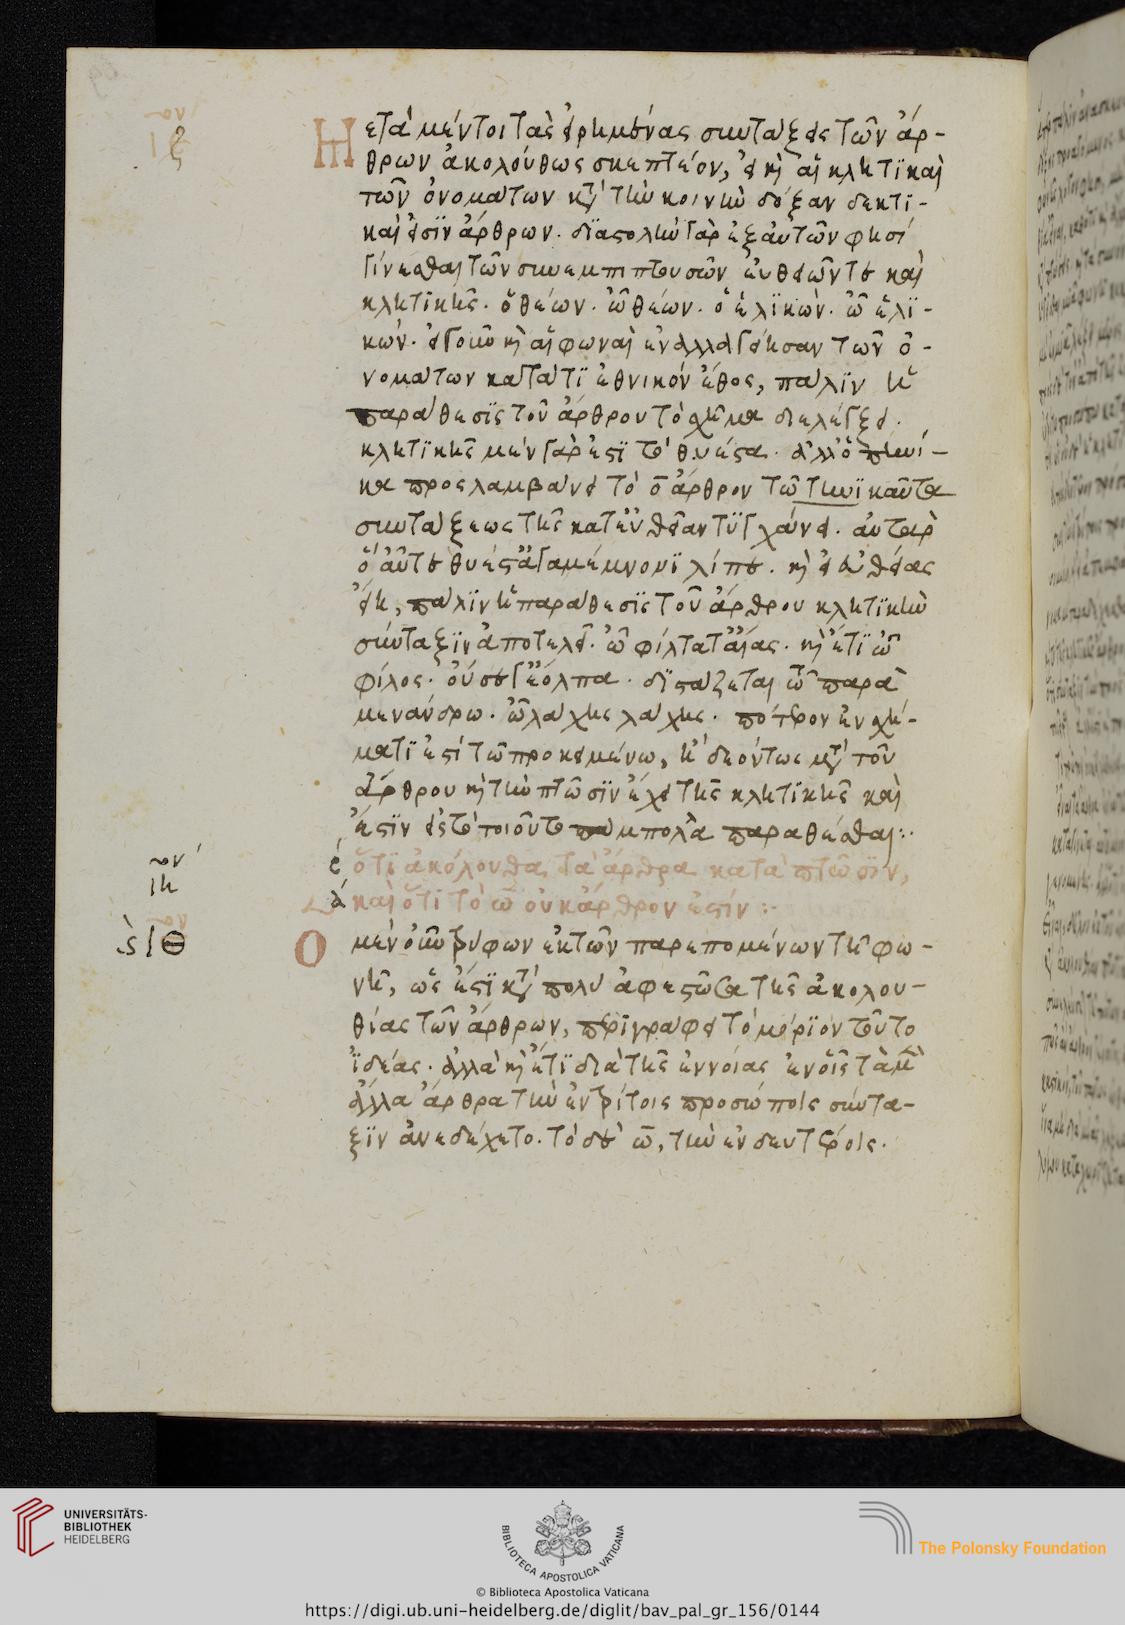 Μετὰ μέντοι τὰς εἰρημένας συντάξεις τῶν ἄρ-
θρων ἀκολούθως σκεπτέον, εἰ καὶ αἱ κλητικαὶ
τῶν ὀνομάτων κατὰ τὴν κοινὴν δόξαν δεκτι-
καί εἰσιν ἄρθρων. διαστολὴν γὰρ ἐξ αὐτῶν φησί
γίνεσθαι τῶν συνεμπιπτουσῶν εὐθειῶν τε καὶ
κλητικῆς. ὁ θέων. ὦ θέων. ὁ ἑλικών. ὦ ἑλι-
κών. εἰ γοῦν καὶ αἱ φωναὶ ἐναλλαγείησαν τῶν ὀ-
νομάτων κατά τι ἐθνικὸν ἔθος, πάλιν ἡ
παράθεσις τοῦ ἄρθρου τὸ σχῆμα διελέγξει.
κλητικῆς μὲν γάρ ἐστι τὸ θυέστα. ἀλλ' ὁπηνί-
κα προσλαμβάνει τὸ ὁ ἄρθρον τῶ τηνικαῦτα
συντάξεως τῆς κατ' εὐθεῖαν τυγχάνει. αὐτὰρ
ὁ αὖτε θυέστ' ἀγαμέμνονι λίπε. καὶ εἰ εὐθείας
εἴη, πάλιν ἡ παράθεσις τοῦ ἄρθρου κλητικὴν
σύνταξιν ἀποτελεῖ. ὦ φίλτατ' αἴας. καὶ ἔτι ὦ
φίλος. οὔ σε γ' ἔολπα. διστάζεται ὦ παρὰ
μενάνδρω. ὦ λάχης λάχης. πότερον ἐν σχή-
ματί ἐστι τῶ προκειμένω, ἢ δεόντως μετὰ τοῦ
ἄρθρου καὶ τὴν πτῶσιν ἔχει τῆς κλητικῆς καὶ
ἔστιν εἰς τὸ τοιοῦτο πάμπολλα παραθέσθαι:
ὅτι ἀκόλουθα τὰ ἄρθρα κατὰ πτῶσιν,
καὶ ὅτι τὸ ὦ οὐκ ἄρθρον ἐστίν:-
Ὁ μὲν οὖν τρύφων ἐκ τῶν παρεπομένων τῆ φω-
νῆ, ὡς ἔστι κατὰ πολὺ ἀφεστῶτα τῆς ἀκολου-
θίας τῶν ἄρθρων, περιγράφει τὸ μόριον τοῦτο
ἰδέας. ἀλλὰ καὶ ἔτι διὰ τῆς ἐννοίας ἐν οἷς τὰ μὲν
ἄλλα ἄρθρα τὴν ἐν τρίτοις προσώποις σύντα-
ξιν ἀνεδέχετο. τὸ δὲ ὦ, τὴν ἐν δευτέροις.
ιζ
ιη
ιθ
UNIVERSITÄTS-
BIBLIOTHEK
HEIDELBERG
BIBLIOTECA APOSTOLICA VATICANA
© Biblioteca Apostolica Vaticana
https://digi.ub.uni-heidelberg.de/diglit/bav_pal_gr_156/0144
The Polonsky Foundation